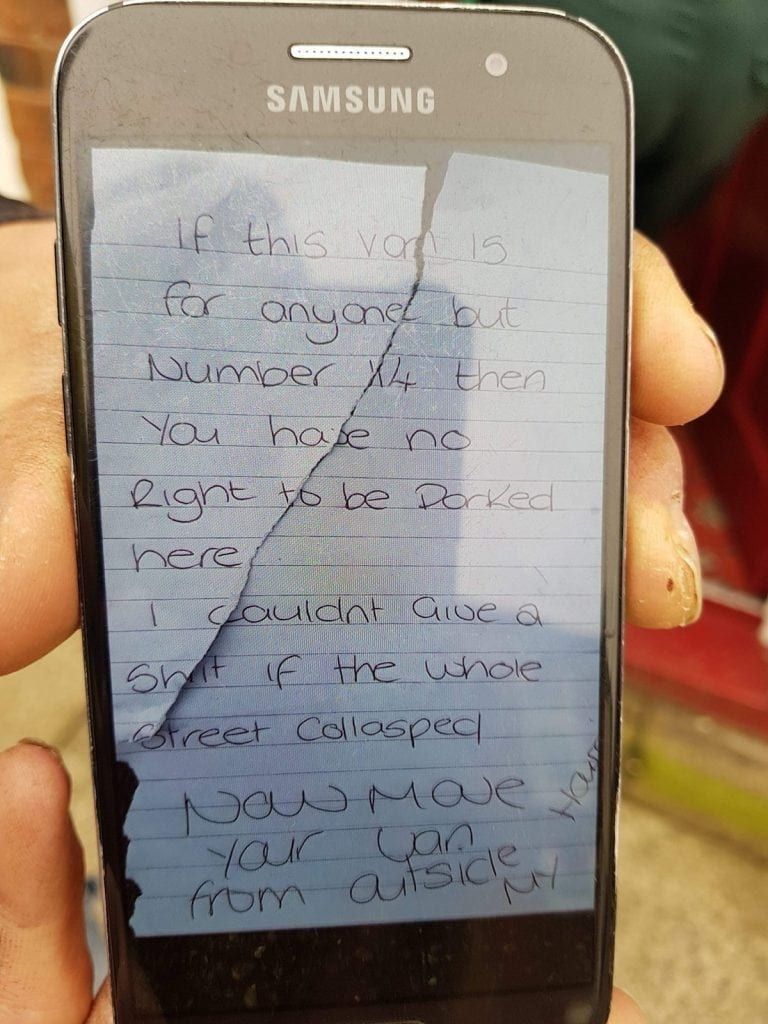 SAMSUNG
If this van is
for anyone but
Number 14 then
You have no
Right to be Parked
here
I couldnt Give a
Shit if the whole
Street Collasped
Now Move
Your Van
from outside MY
House